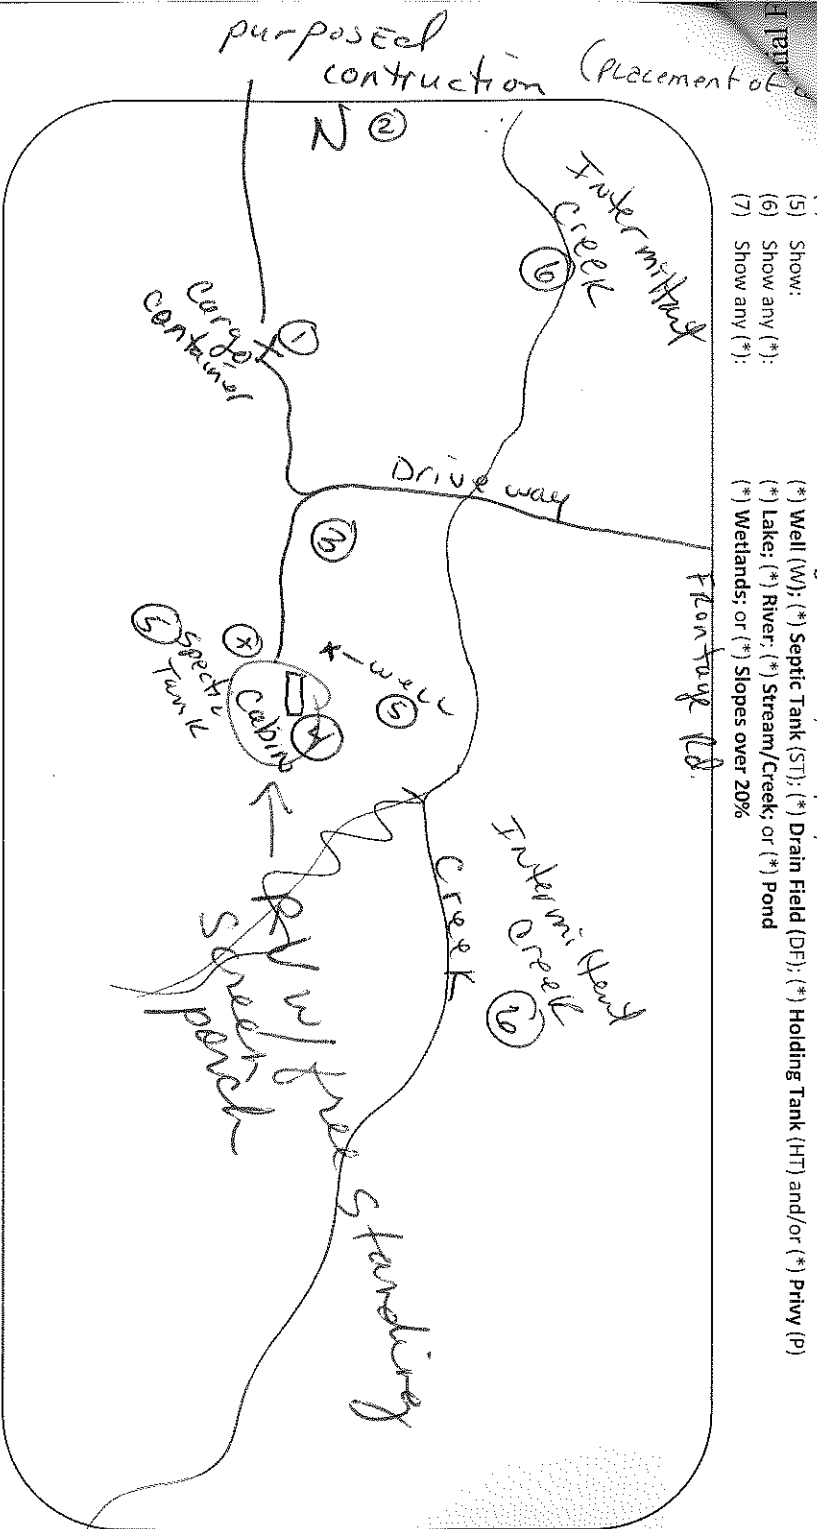 purposed
contruction (placement of
(5) Show:
(*) Well (W); (*) Septic Tank (ST); (*) Drain Field (DF); (*) Holding Tank (HT) and/or (*) Privy (P)
(6) Show any (*):
(*) Lake; (*) River; (*) Stream/Creek; or (*) Pond
(7) Show any (*):
(*) Wetlands; or (*) Slopes over 20%
N (2)
Intermittant
Creek
(6)
(1)
Cargo
container
X
Drive way
Frontage Rd.
(3)
(X)
well
(5)
(5) Spectic
Tank
Cabin
(4)
Creek
Intermittent
Creek
(6)
RV w/ free standing
Screen
porch